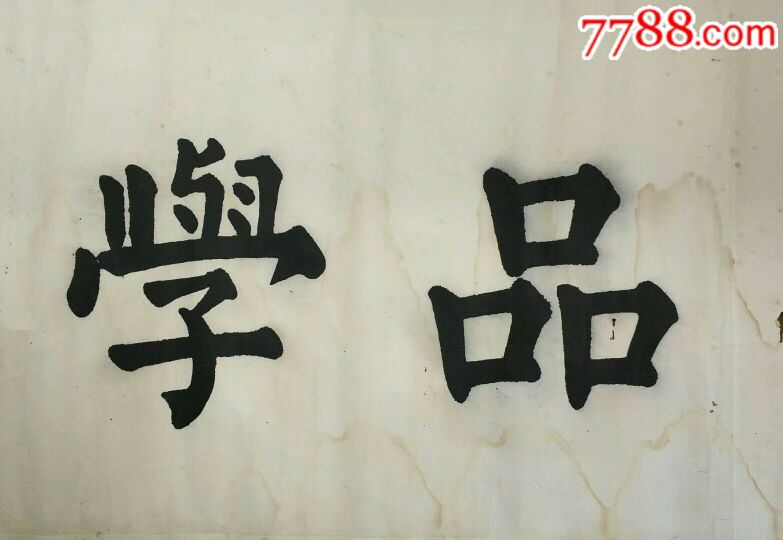 7788.com
品學